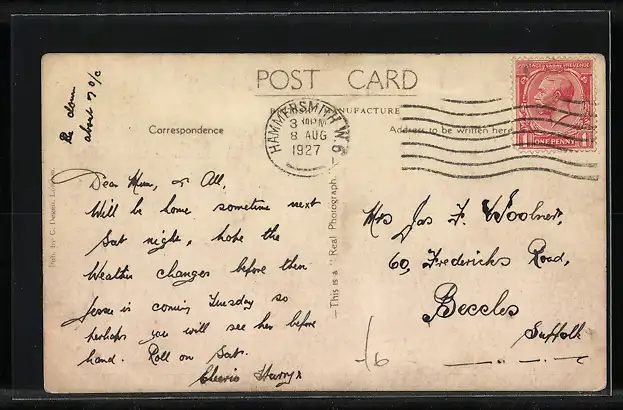 POST CARD
MANUFACTURE
Correspondence
Address to be written here
HAMMERSMITH W.6
3 PM
8 AUG
1927
POSTAGE REVENUE
ONE PENNY
Be down
about 7 o/c
Dear Mum, & All,
Will be home sometime next
Sat night, hope the
Weather changes before then
Jessie is coming Tuesday so
perhaps you will see her before
hand. Roll on Sat.
Cheerio Harry x
This is a "Real Photograph
Pub. by C. London
Mrs Jas F. Woolner,
60, Fredericks Road,
Beccles
Suffolk
/6